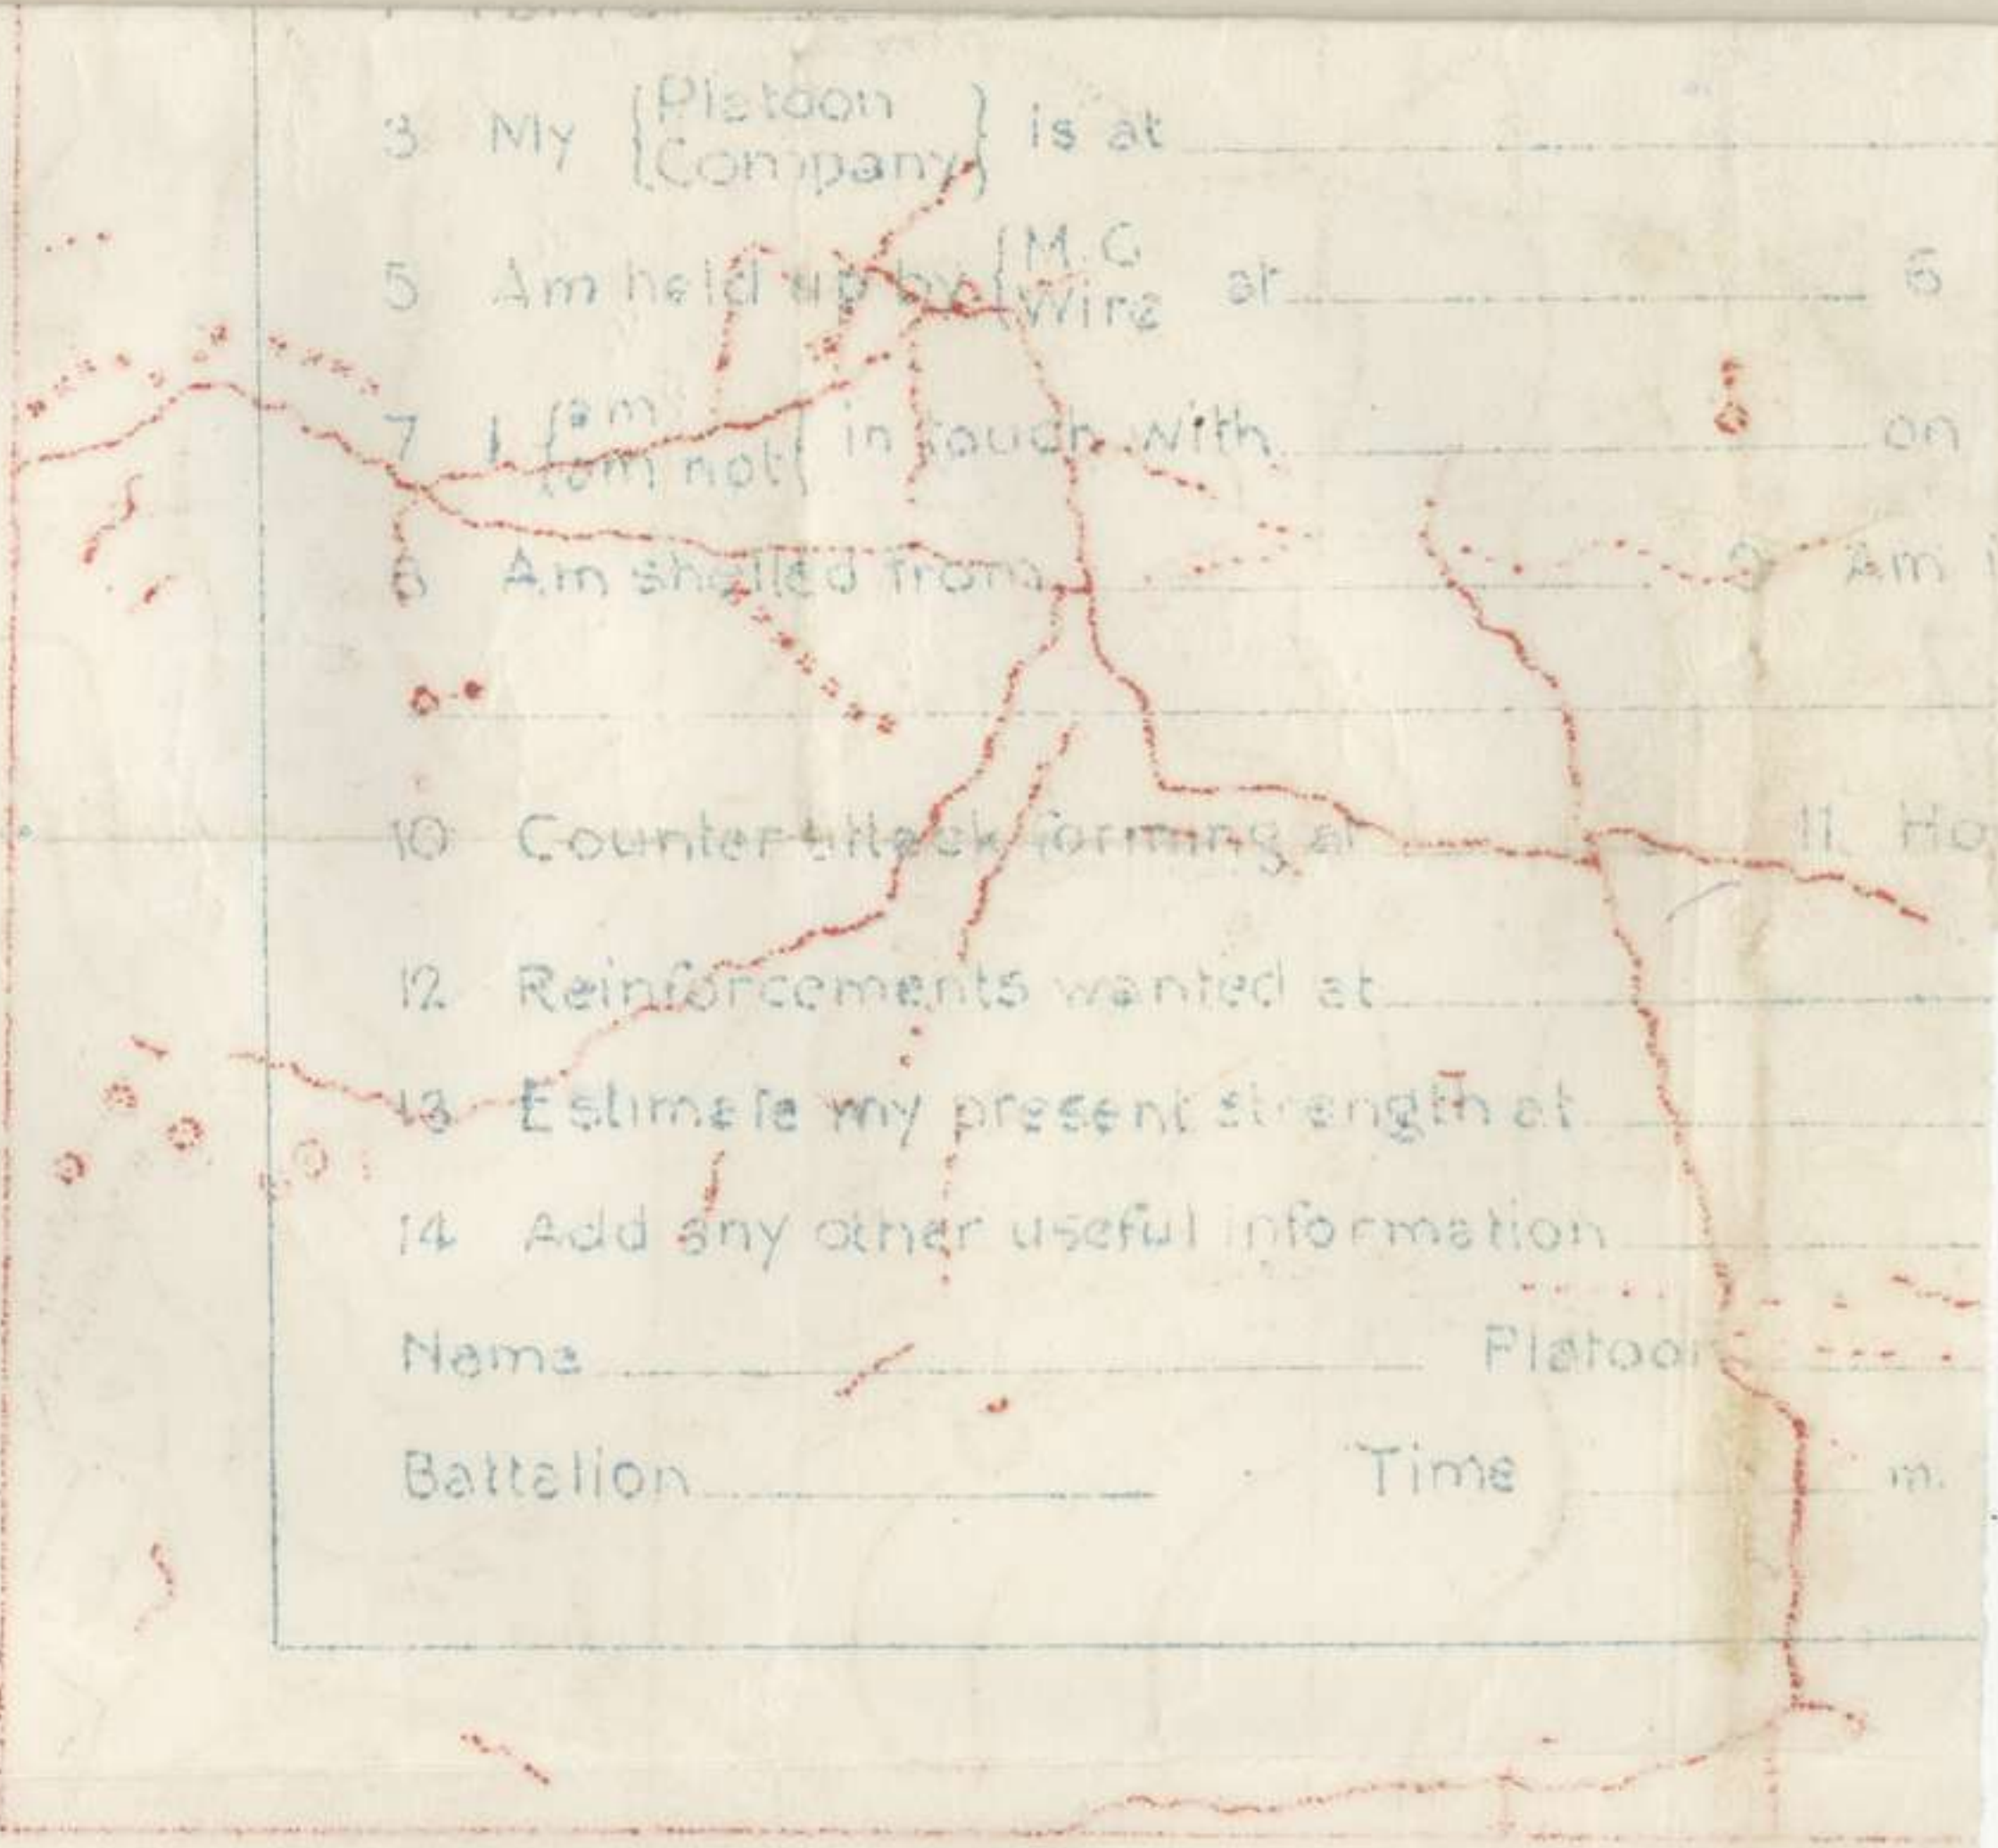 3 My {Platoon
Company} is at
5 Am held up by {M.G
Wire at 6
7 I {am
am not} in touch with on
8 Am shelled from 9 Am
10 Counter attack forming at 11. Ho
12 Reinforcements wanted at
13 Estimate my present strength at
14 Add any other useful information
Name Platoon
Battalion Time m.